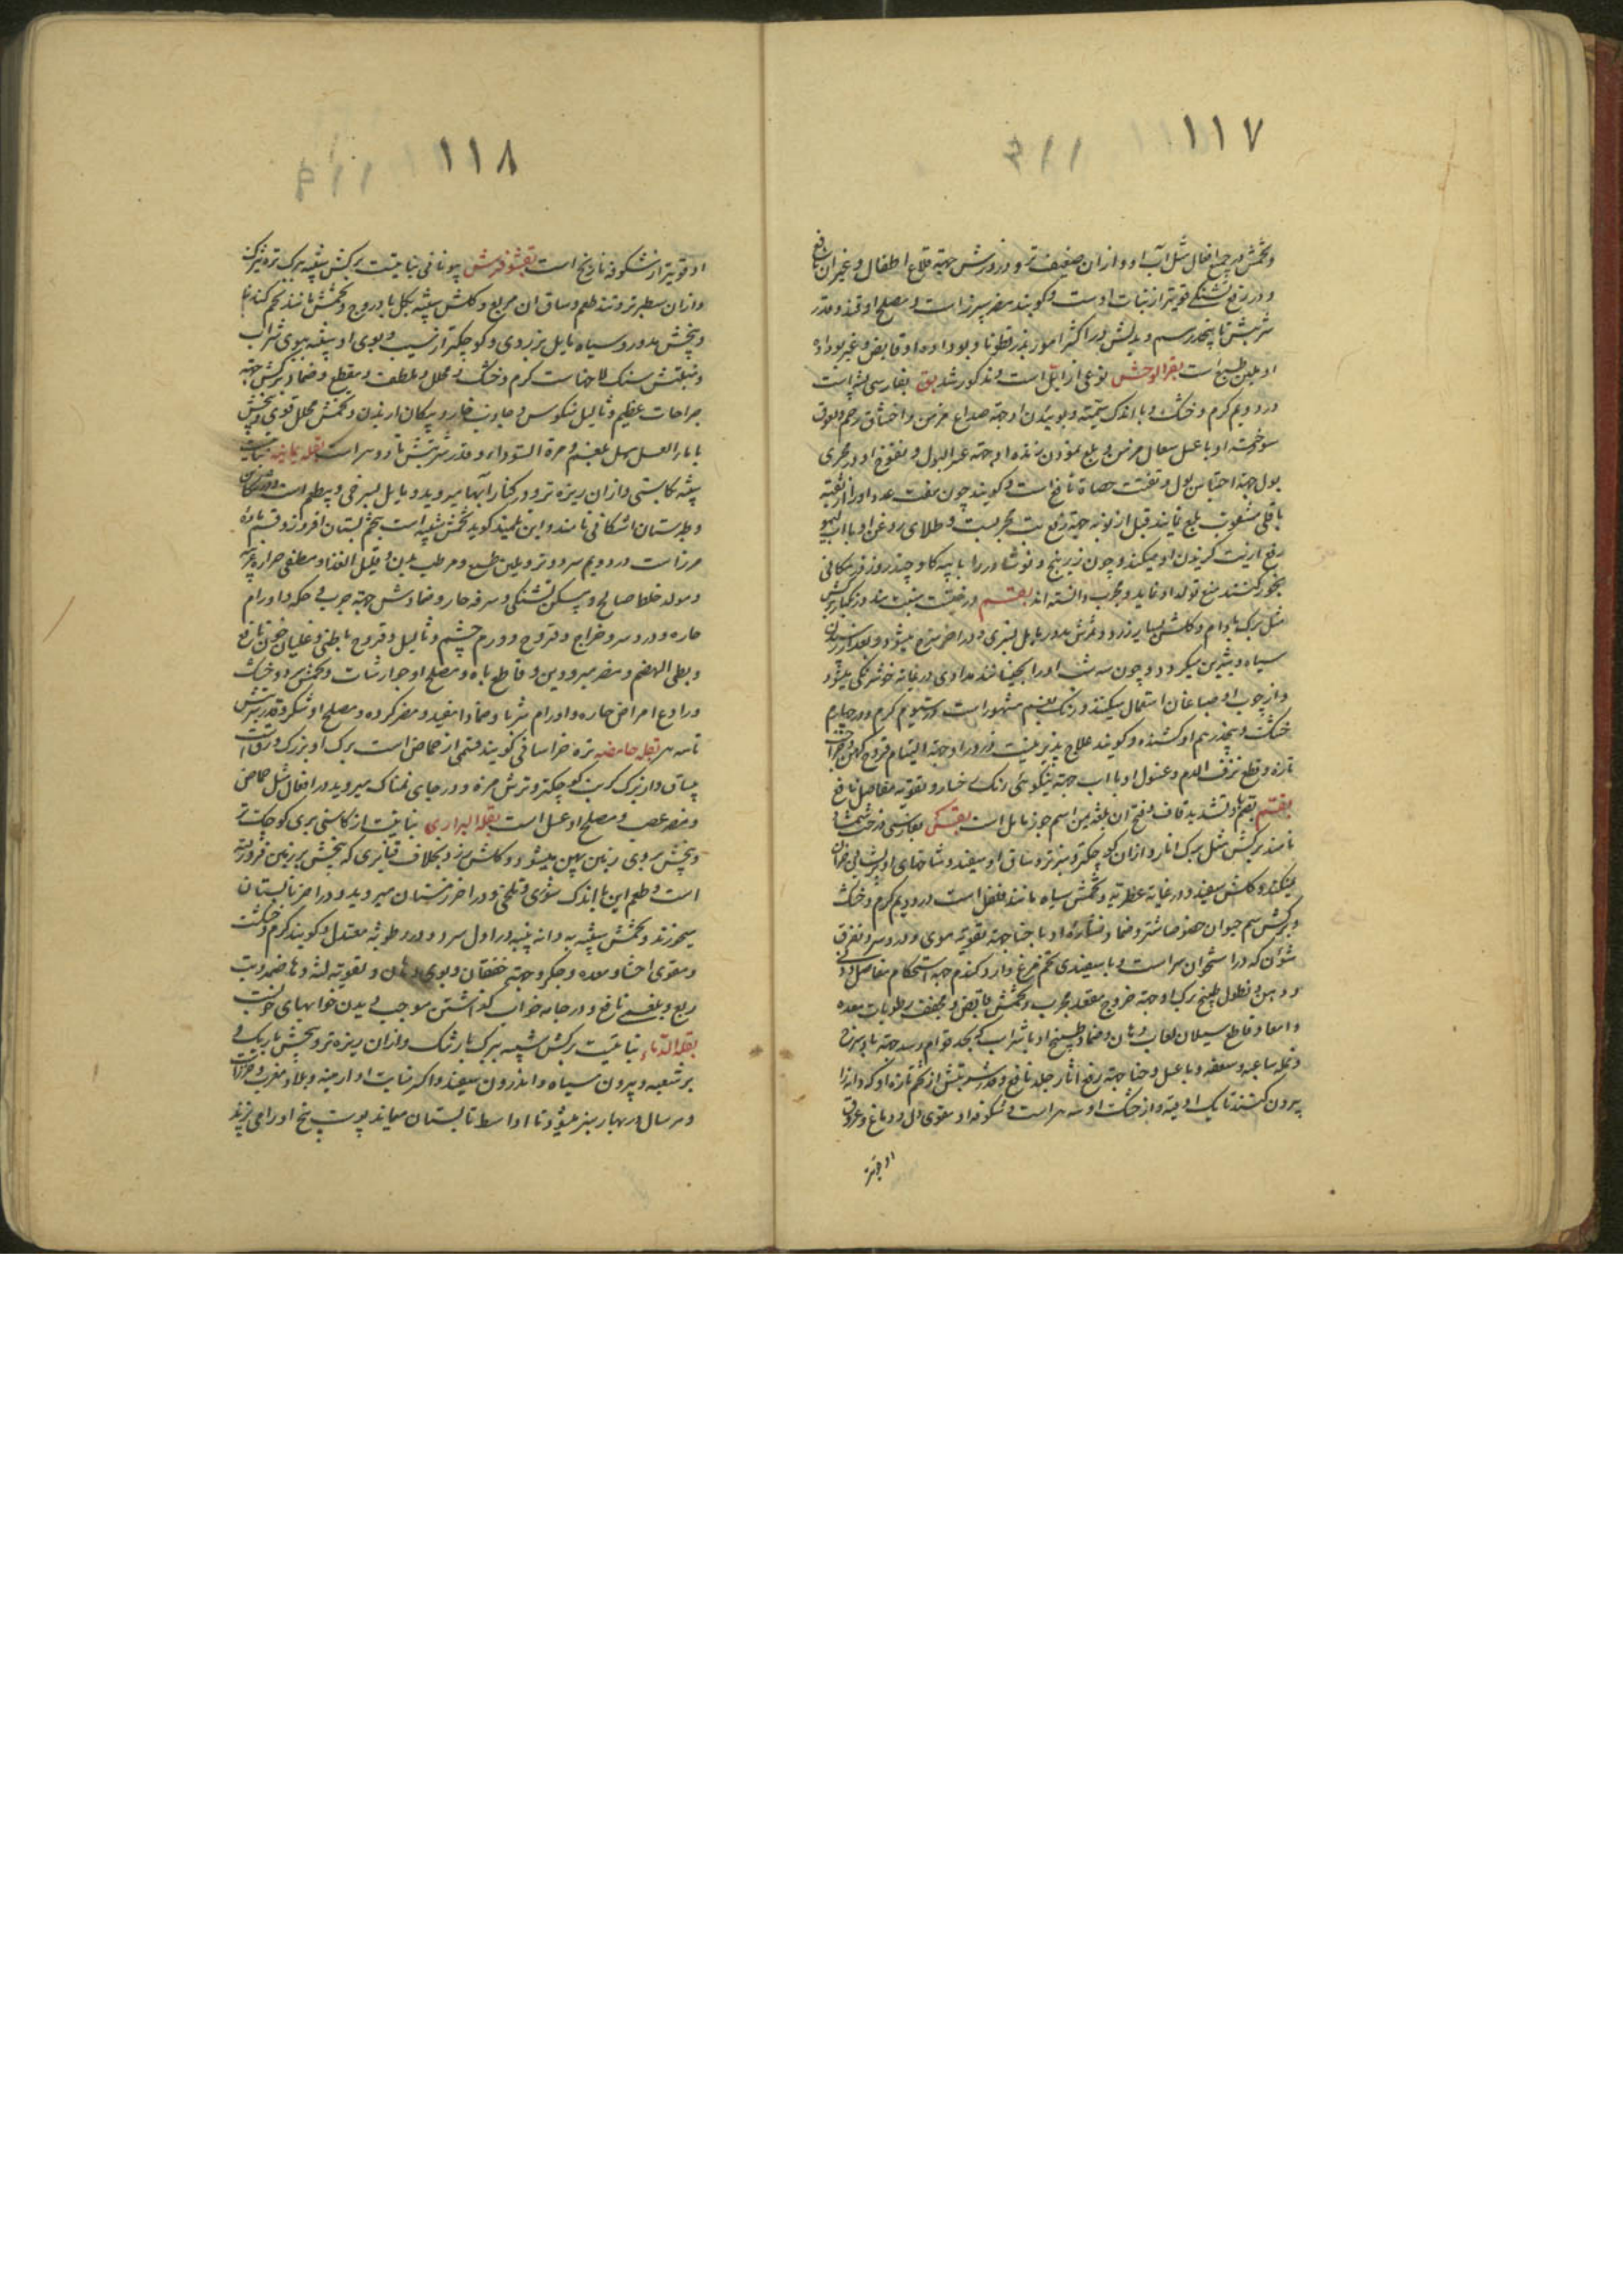 ١١٧
وتخمش در جمیع افعال مثل آب او و ازان ضعیف تر و ذرورش جهة قلاع اطفال و غیر آن نافع
و در رفع تشنگی قویتر از نبات اوست و گویند مضر سپرز است و مصلح او قند و قدر
شربتش تا پنجدرهم و بدلش در اکثر امور بذرقطونا و بو داده او قابض و غیر بو داده
او ملین طبع است بقر الوحش نوعی از ایل است و مذکور شد بق بفارسی پشه است
در دویم گرم و خشک و با اندک سمیته و بوئیدن او جهة صداع مزمن و اختناق رحم و لعوق
سوخته او با عسل سعال مزمن و بلع نمودن زنده او جهة عسر البول و منفوخ او در مجری
بول جهة احتباس بول و تفتت حصاة نافع است و گویند چون هفت عدد او را در ثقبه
باقلی بلع نمایند قبل از نوبه جهة رفع تب مجربست و طلای روغن او با آب لیمو
رفع اذیت گزیدن او میکند و چون زرنیخ و نوشادر را با پیه گاو چند روز در مکانی
بخور کنند منع تولد او نماید و مجرب دانسته اند بقم درختیست منبت هند و زنگبار برگش
مثل برگ بادام و گلش بسیار زرد و ثمرش مدور مایل بسرخی و در آخر سرخ میشود و بعد از رسیدن
سیاه و شیرین میگردد و چون سه شب او را بخیسانند مدادی در غایة خوشرنگی میشود
و از چوب او صباغان استعمال میکنند و رنگ بقم مشهور است در سیوم گرم و در چهارم
خشک و پنجدرهم او کشنده و گویند علاج پذیر نیست و ذرور او جهة التیام قروح کهن و جراحات
تازه و قطع نزف الدم و غسول او با آب جهة نیکوئی رنگ رخسار و تقویة مفاصل نافع
بقم بضم با و تشدید قاف و فتح آن بلغة یمن اسم جوز ماثل است بقس بفارسی درخت شمشاد
نامند برگش مثل برگ انار و ازان کوچکتر و سبزتر و ساق او سفید و شاخهای او پریشانی بران
میکند و گلش سفید و در غایة عطریة و تخمش سیاه مانند فلفل است در دویم گرم و خشک
و برگش سم حیوان خصوصا شتر و ضماد نشاره او با حنا جهة تقویة موی و درد سر و تفرق
شؤن که در استخوان سر است و با سفیدی تخم مرغ و آرد گندم جهة استحکام مفاصل و
و وهن و نطول طبیخ برگ او جهة خروج مقعد مجرب و تخمش قابض و مجفف رطوبات معده
و امعا و قاطع سیلان لعاب دهان و ضماد طبیخ او با شراب که بحد قوام رسد جهة باد سرخ
و نمله ساعیه و سعفه و با عسل و حنا جهة رفع آثار جلد نافع و قدر شربتش از تخم تازه او که دانه را
بیرون کنند تا یک اوقیه و از خشک او سه درم است و شکوفه او مقوی دل و دماغ و عرق
او قویتر
١١٨
او قویتر از شکوفه نارنج است بقشوفرمش یونانی نباتیست برگش شبیه ببرگ تره تیزک
و ازان سطبرتر و تند طعم و ساق آن مربع و گلش شبیه بگل بادروج و تخمش مانند تخم گندنا
و بیخش مدور و سیاه مایل بزردی و کوچکتر از سیب و بوی او شبیه ببوی شراب
و منبتش سنگ لاخهاست گرم و خشک و محلل و ملطف و مقطع و ضماد برگش جهة
جراحات عظیم و ثالیل منکوس و جاذب خار و پیکان از بدن و تخمش محلل قوی و بیخش
با ماء العسل مسهل بلغم و مرة السوداء و قدر شربتش تا دو درم است بقله یمانیه نباتیست
شبیه بکاسنی و ازان ریزه تر و در کنار آبها میروید و مایل بسرخی و بیطعم است
و بطبرستان اشکانی نامند و ابن تلمیذ گوید تخمش شبیه است بتخم بستان افروز و قسم ماده
مرزا است در دویم سرد و تر و ملین طبع و مرطب بدن و قلیل الغذا و مطفی حرارة غریبه
و مولد خلط صالح و مسکن تشنگی و سرفه حار و ضمادش جهة جرب و حکه و اورام
حاره و درد سر و خراج و قروح و ورم چشم و ثالیل و قروح باطنی و غلیان خون نافع
و بطی الهضم و مضر مبرودین و قاطع باه و مصلح او جوارشات و تخمش سرد و خشک
و رادع امراض حاره و اورام شربا و ضمادا مفید و مضر گرده و مصلح او شکر و قدر شربتش
تا سه درم بقله حامضه تره خراسانی گویند قسمی از حماض است برگ او بزرگ و
بیساق و از برگ کرنب کوچکتر و ترش مزه و در جاهای نمناک میروید و در افعال مثل حماض
و مضر عصب و مصلح او عسل است بقله البراری نباتیست از کاسنی بری کوچک تر
و بیخش بروی زمین پهن میشود و گلش زرد بخلاف قنابری که بیخش بزمین فرو رفته
است و طعم این با اندک شوری و تلخی و در آخر زمستان میروید و در آخر تابستان
میریزد و تخمش شبیه به دانه پنبه در اول سرد و در رطوبة معتدل و گویند گرم و خشکست
و مقوی احشا و معده و جگر و جهة خفقان و بوی دهان و تقویة لثه و هاضمه و تب
ربع و بلغمی نافع و در جامه خواب گذاشتن موجب دیدن خوابهای خوبست
بقله الذهبیه نباتیست برگش شبیه ببرگ بارتنگ و ازان ریزه تر و بیخش باریک و
پر شعبه و بیرون سیاه و اندرون سفید و اکثر منابت او ارمنیه و بلاد مغرب و
و هر سال در بهار سبز میشود تا اواسط تابستان میماند پوست بیخ او را می پزند